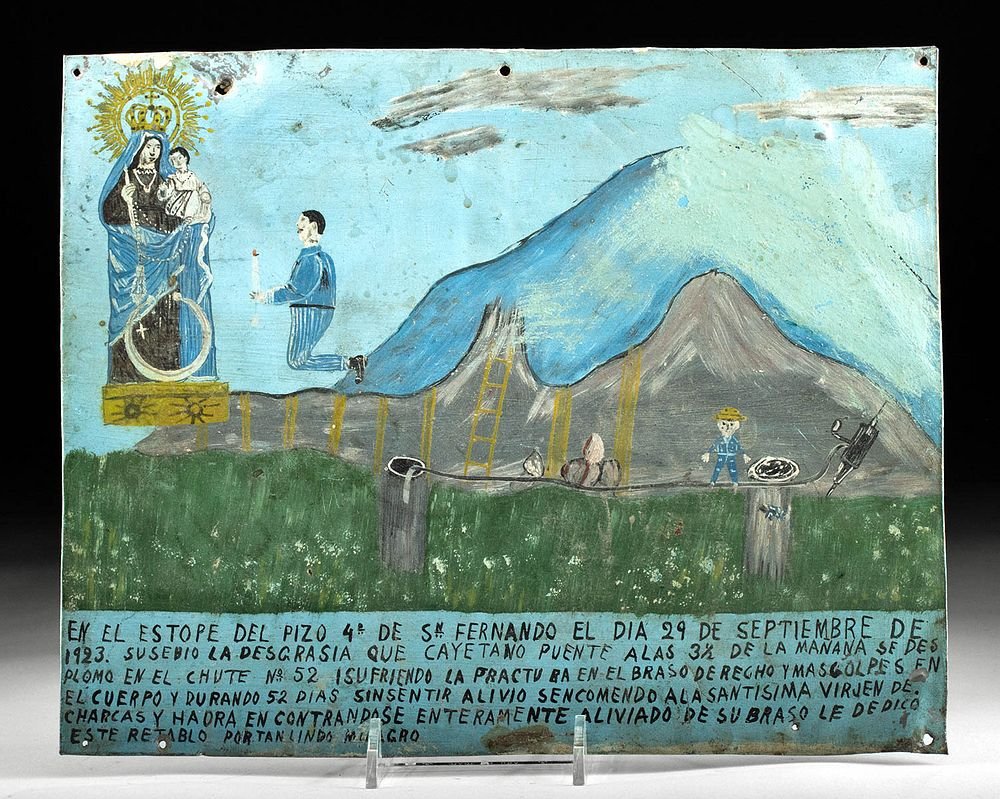 EN EL ESTOPE DEL PIZO 4º DE Sⁿ FERNANDO EL DIA 29 DE SEPTIEMBRE DE
1923. SUSEBIO LA DESGRASIA QUE CAYETANO PUENTE ALAS 3½ DE LA MAÑANA SE DES
PLOMO EN EL CHUTE Nº 52 ISUFRIENDO LA FRACTURA EN EL BRASO DERECHO Y MAS GOLPES EN
EL CUERPO Y DURANDO 52 DIAS SINSENTIR ALIVIO SENCOMENDO ALASANTISIMA VIRJEN DE.
CHARCAS Y HAORA EN CONTRANDASE ENTERAMENTE ALIVIADO DE SUBRASO LE DEDICO
ESTE RETABLO PORTANLINDO MILAGRO